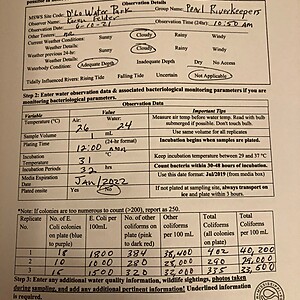 Observation Details
MSWS Site Code: D'Lo Water Park Group Name: Pearl Riverkeepers
Observer Name:
Date: 6-10-21 Observation Time (24hr): 10:50 AM
Other Tester: NA
Current Weather Conditions: Sunny Cloudy Rainy Windy
Weather Details:
Weather previous 24-hr: Sunny Cloudy Rainy Windy
Weather Details:
Waterbody Condition: Adequate Depth Inadequate Depth Dry No Access
Tidally Influenced Rivers: Rising Tide Falling Tide Uncertain Not Applicable
Step 2: Enter water observation data & associated bacteriological monitoring parameters if you are
monitoring bacteriological parameters.
Observation Data
Variable Value Important Tips
Temperature (°C) Air: 26 Water: 24 Measure air temp before water temp. Read with bulb
submerged if possible. Don't touch bulb.
Sample Volume 1 mL Use same volume for all replicates
Plating Time 12:00 AM (24-hr format) Incubation begins when samples are plated.
Incubation Temperature 31 °C Keep incubation temperature between 29 and 37 °C
Incubation Periods 32 hrs Count bacteria within 30-48 hours of incubation.
Media Expiration Date Jan/2022 Use this date format: Jul/2019 (from media box)
Plated onsite Yes No If not plated at sampling site, always transport on
ice and plate within 3 hours.
*Note: If colonies are too numerous to count (>200), report as 250.
Replicate No. No. of E. Coli colonies on plate (blue to purple) E. Coli per 100mL No. of other coliforms on plate (pink to dark red) Other coliforms per 100 mL Total Coliforms (all colonies on plate) Total coliforms per 100 mL
1 18 1800 384 38,400 402 40,200
2 10 1000 280 28,000 290 29,000
3 15 1500 320 32,000 335 33,500
Step 3: Enter any additional water quality information, wildlife sightings, photos taken
during sampling, and add any additional pertinent information!
is required.